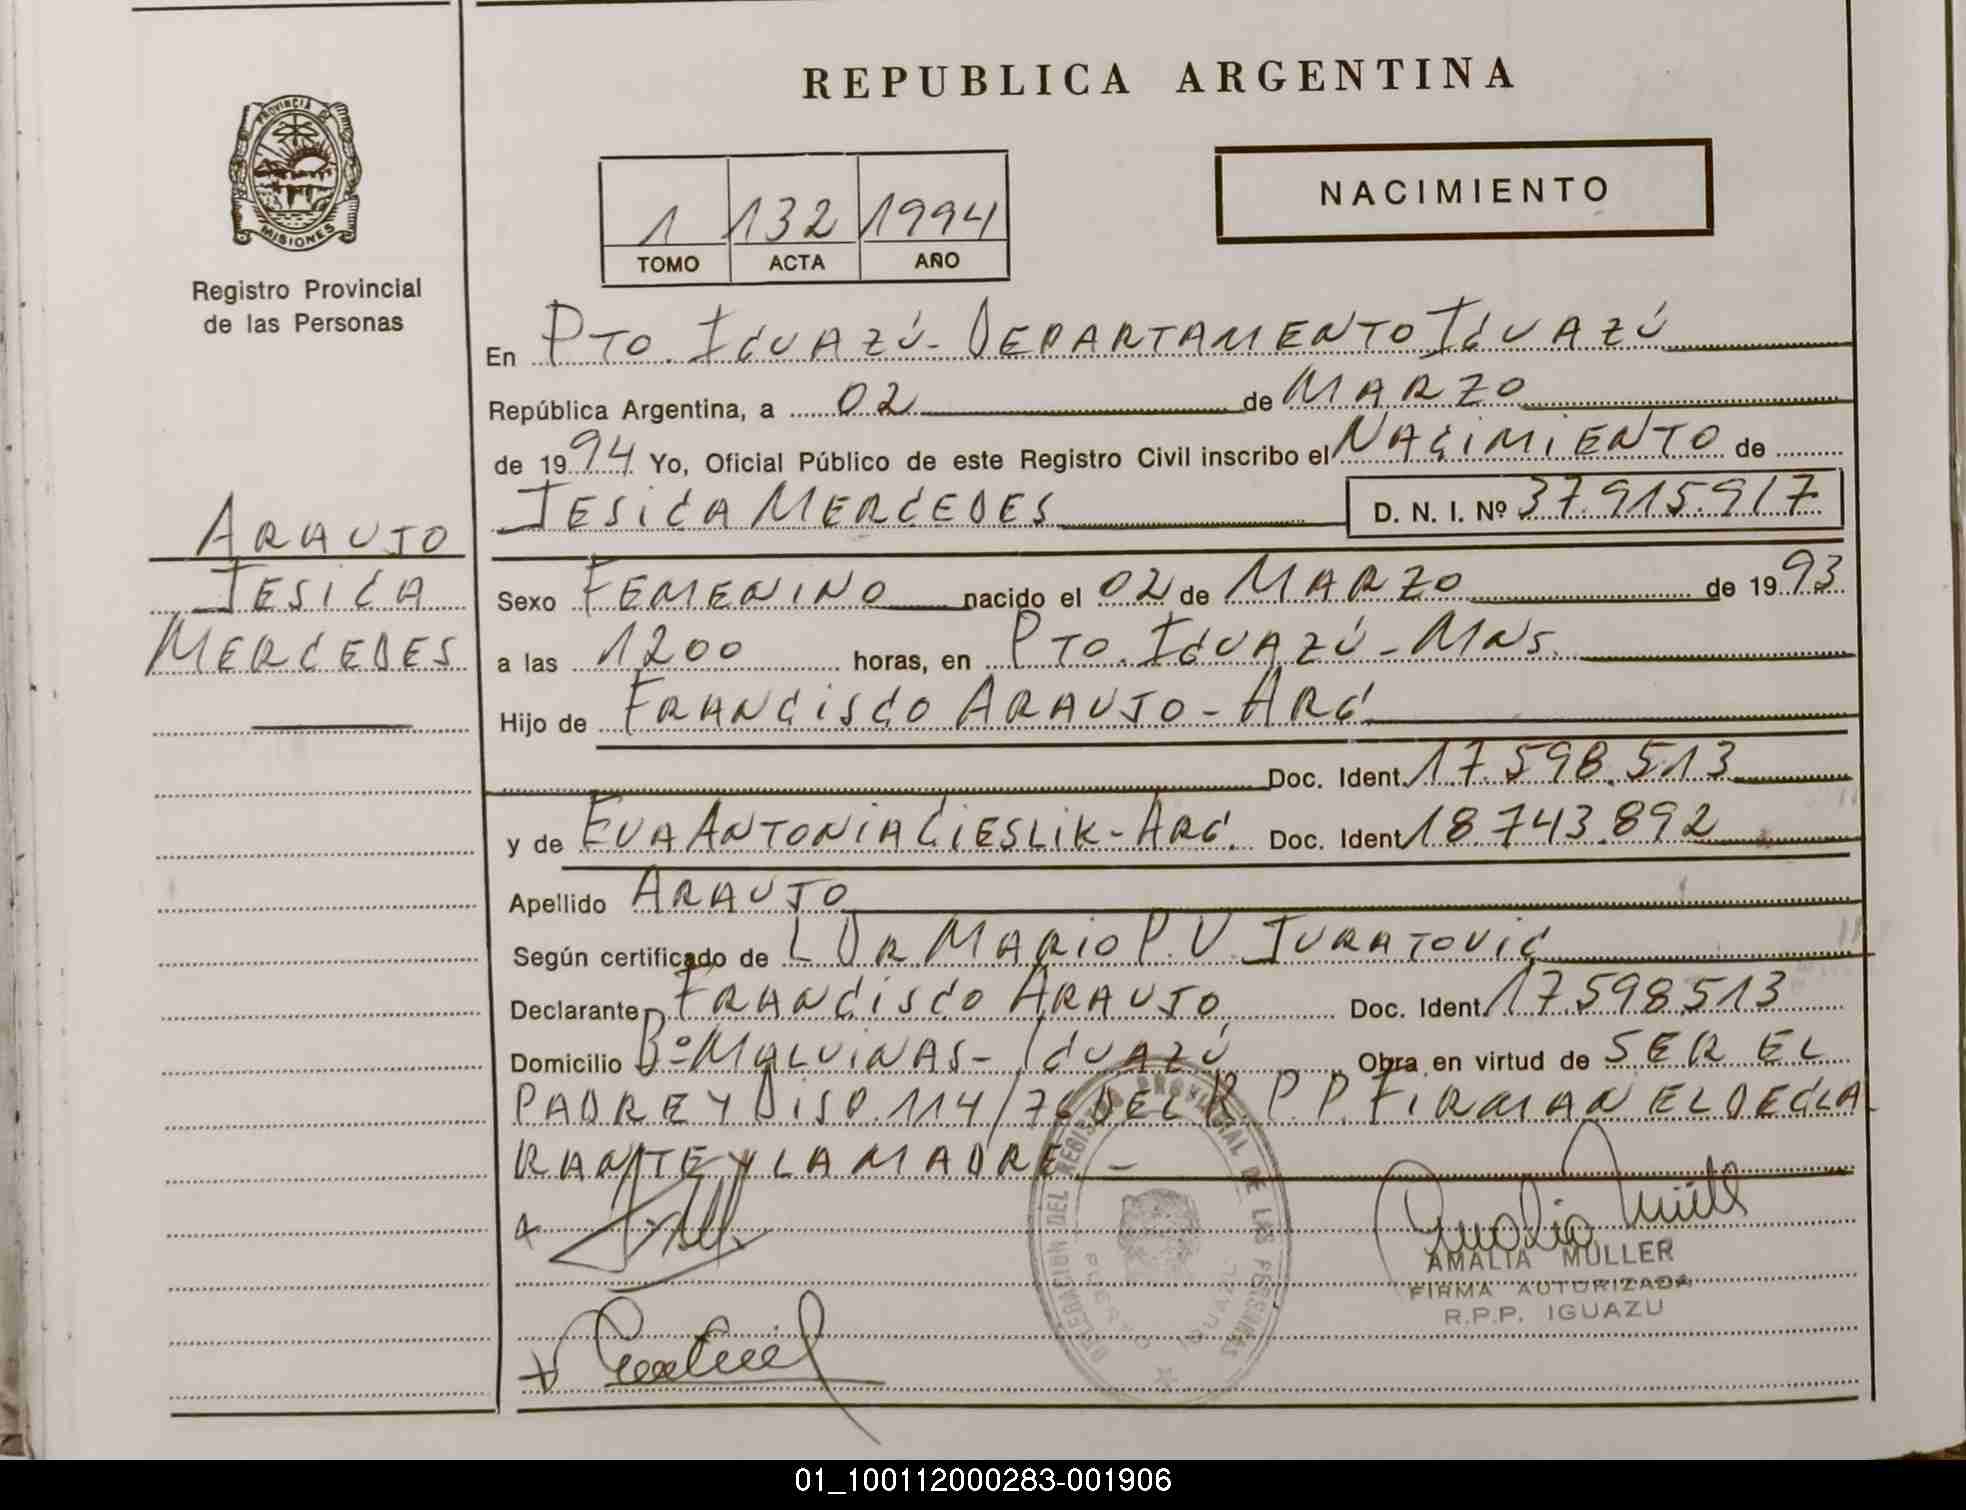 REPUBLICA ARGENTINA
PROVINCIA DE
MISIONES
Registro Provincial
de las Personas
NACIMIENTO
1 132 1994
TOMO ACTA AÑO
En PTO. IGUAZÚ - DEPARTAMENTO IGUAZÚ
República Argentina, a 02 de MARZO
de 1994 Yo, Oficial Público de este Registro Civil inscribo el NACIMIENTO de
JESICA MERCEDES D. N. I. Nº 37.915.917
ARAUJO
JESICA
MERCEDES
Sexo FEMENINO nacido el 02 de MARZO de 1993
a las 1200 horas, en PTO. IGUAZÚ - MNS.
Hijo de FRANCISCO ARAUJO - ARG
Doc. Ident. 17.598.513
y de EVA ANTONIA CIESLIK - ARG. Doc. Ident 18.743.892
Apellido ARAUJO
Según certificado de L DR MARIO P. V. JURATOVIC
Declarante FRANCISCO ARAUJO, Doc. Ident. 17.598.513
Domicilio Bº MALVINAS - IGUAZÚ Obra en virtud de SER EL
PADRE Y DISP. 114/76 DEL R. P. P. FIRMAN EL DECLA
RANTE Y LA MADRE. -
DELEGACION DEL REGISTRO PROVINCIAL DE LAS PERSONAS
PUERTO IGUAZU
Amalia Müller
AMALIA MULLER
FIRMA AUTORIZADA
R.P.P. IGUAZU
01_100112000283-001906